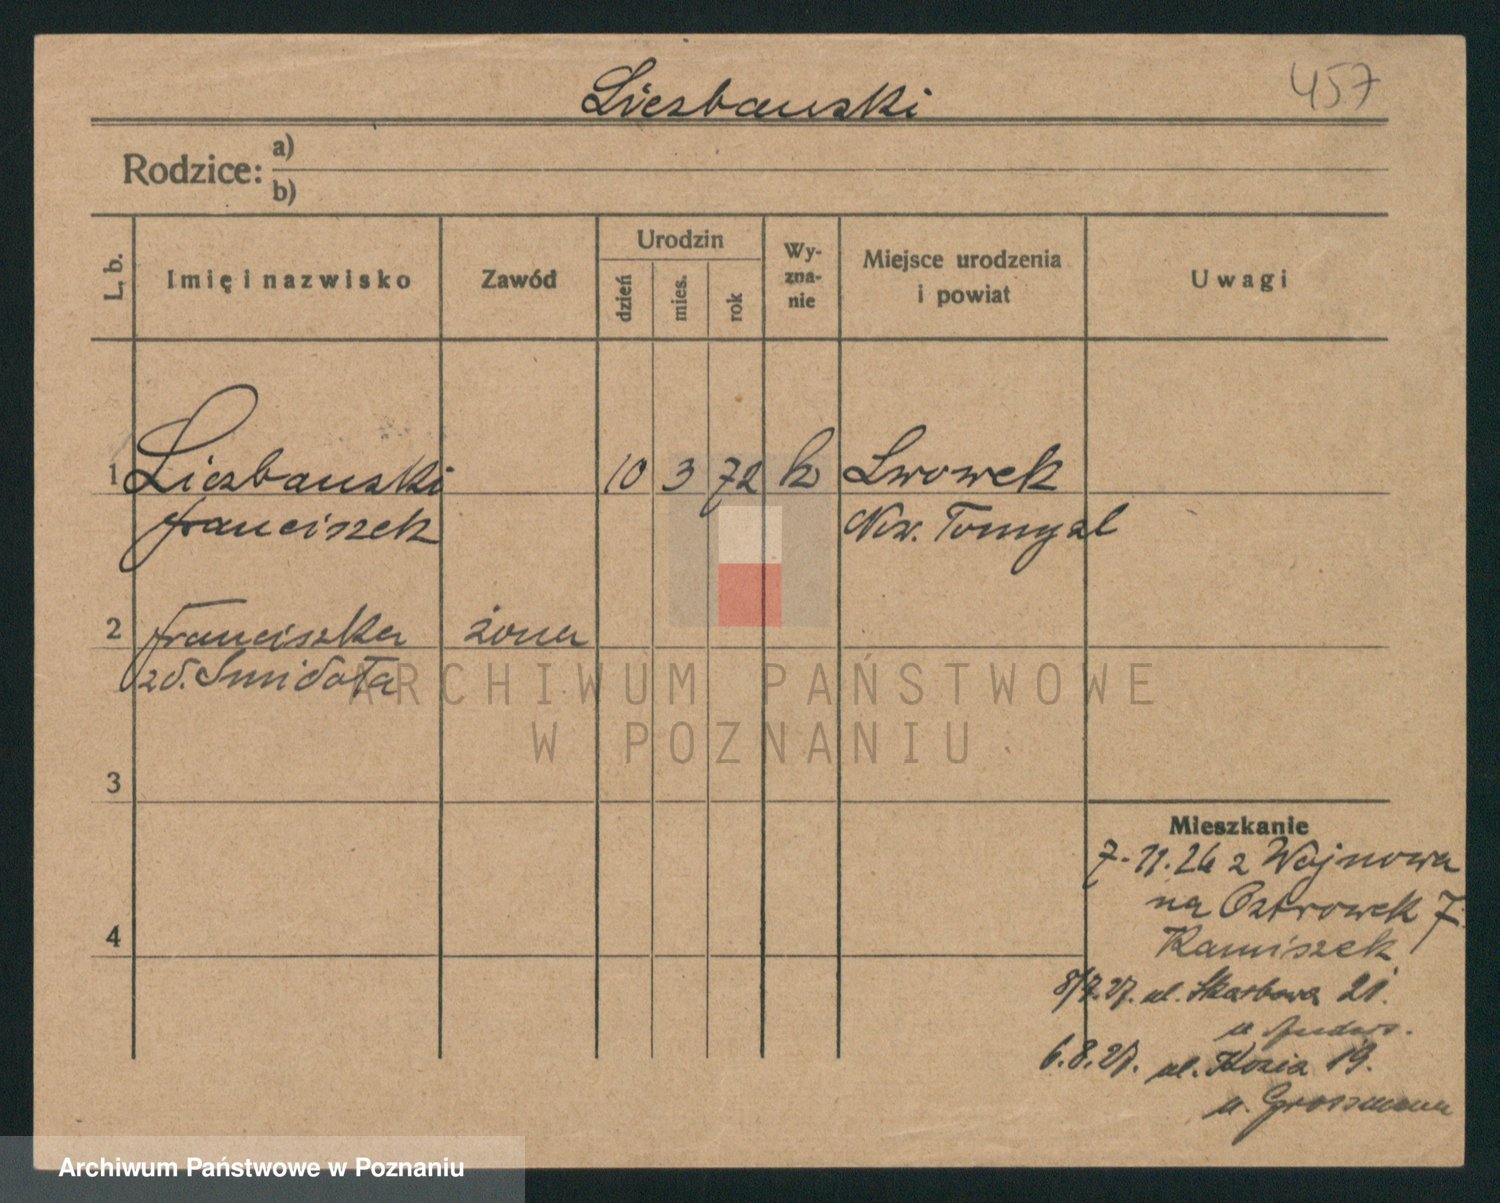 457
Liczbanski
Rodzice: a)
b)
L. b.
Imię i nazwisko
Zawód
Urodzin
dzień
mies.
rok
Wy-
zna-
nie
Miejsce urodzenia
i powiat
Uwagi
1 Liczbanski 10 3 72 k Lwowek
Franciszek Now. Tomysl
2 Franciszka żona
zd. Smidota
3
4
Mieszkanie
7.11.26 z Wojnowa
na Ostrowek 7.
Kamiszek
8/7.27. ul. Skarbowa 21.
u
6.8.27. ul. Kozia 19.
u. Grossmana
ARCHIWUM PAŃSTWOWE
W POZNANIU
Archiwum Państwowe w Poznaniu